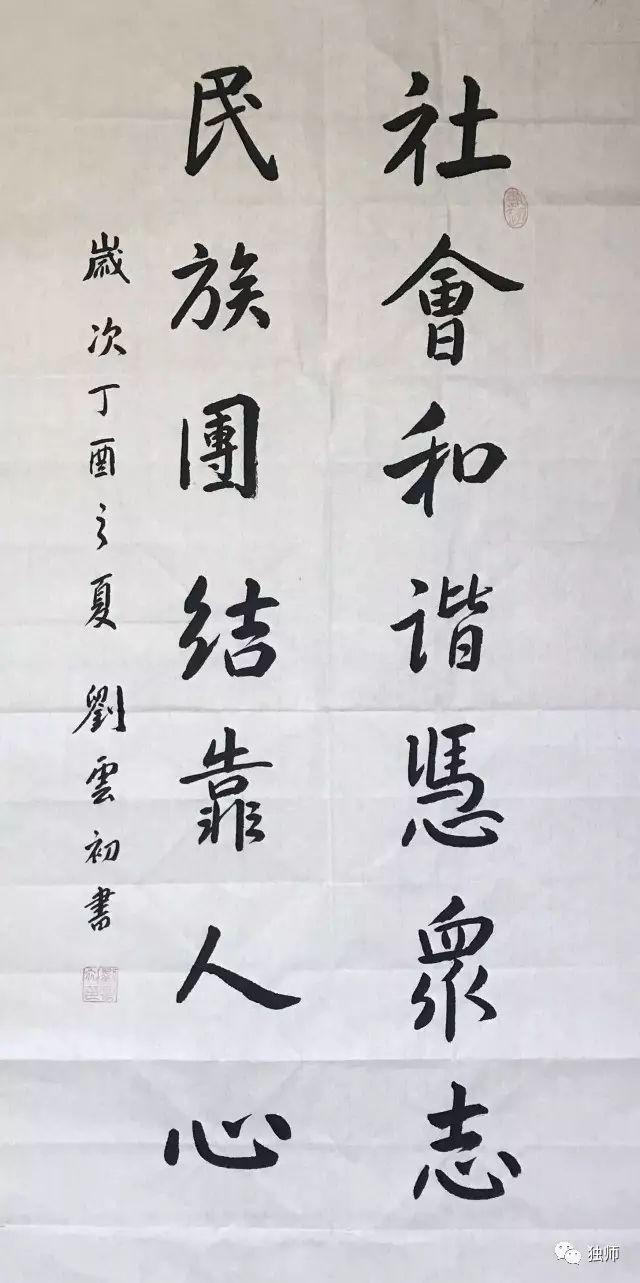 社會和谐憑眾志
民族團结靠人心
歲次丁酉之夏 劉雲初書
独师